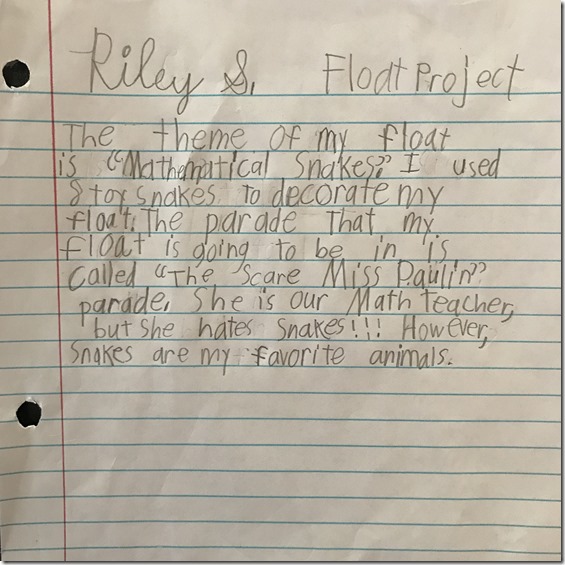 Riley S. Float Project
The theme of my float
is "Mathematical Snakes." I used
8 toy snakes to decorate my
float. The parade that my
float is going to be in is
called "The Scare Miss Paulin"
parade. She is our Math teacher,
but she hates snakes!!! However,
snakes are my favorite animals.